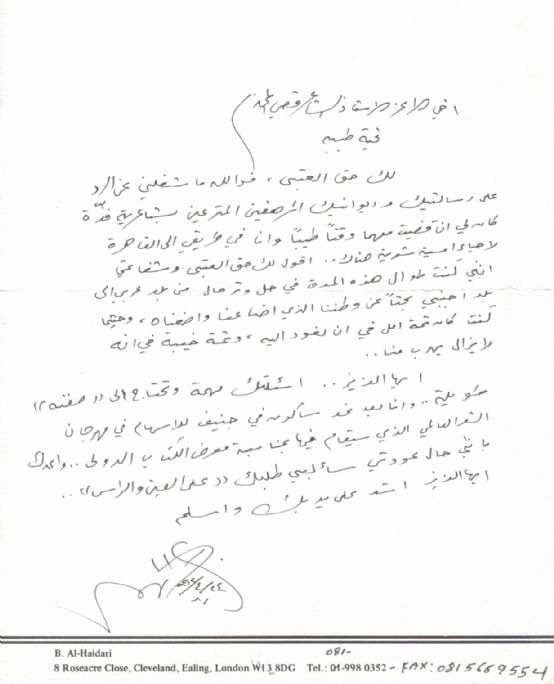 اخي الاعز الاستاذ الشاعر قصي
تحية طيبه
لك حق العتبى ، فوالله ما شغلني عن الرد
على رسالتيك و ديوانيك المرهفين المترعين بشاعرية فذّة
كان لي ان قضيت معهما وقتاً طيباً وانا في طريقي الى القاهرة
لاحياء امسية شعرية هناك .. اقول لك حق العتبى وشفاعتي
انني كنت طوال هذه المدة في حل وترحال من بلد عربي الى
بلد اجنبي بحثاً عن وطننا الذي اضاعنا واضعناه ، وحيثما
كنت كان ثمة امل في ان نعود اليه ، وثمة خيبة في انه
لا يزال يهرب منا ..
ايها العزيز .. اسئلتك مهمة وتحتاج الى (( صفنه ))
طويلة .. وانا بعد غد سأكون في جنيف للاسهام في مهرجان
الشعر العالمي الذي سيقام فيها بمناسبة معرض الكتاب الدولي .. واعدك
بانني حال عودتي سألبي طلبك (( على العين والراس )) ..
ايها العزيز اشد على يديك واسلم
B. Al-Haidari
8 Roseacre Close, Cleveland, Ealing, London W13 8DG Tel.: 01-998 0352 - FAX: 0815669554
081-